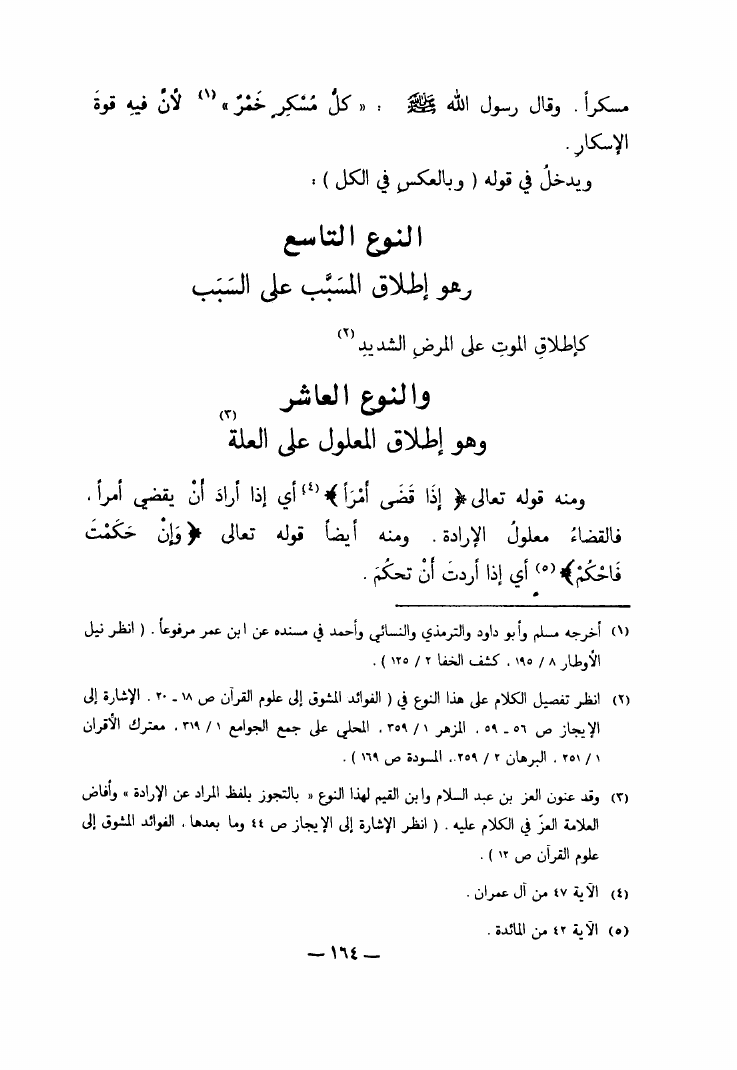 مسكراً . وقال رسول الله ﷺ : « كلُّ مُسْكِرٍ خَمْرٌ » (١) لأنَّ فيهِ قوةَ
الإسكارِ .
ويدخلُ في قوله ( وبالعكسِ في الكل ) :
النوع التاسع
وهو إطلاق المسَبَّب على السَبَب
كإطلاقِ الموتِ على المرضِ الشديدِ (٢)
والنوع العاشر
وهو إطلاق المعلول على العلة (٣)
ومنه قوله تعالى ﴿ إِذَا قَضَى أَمْرَاً ﴾ (٤) أي إذا أرادَ أنْ يقضي أمراً .
فالقضاءُ معلولُ الإرادة . ومنه أيضاً قوله تعالى ﴿ وَإِنْ حَكَمْتَ
فَاحْكُمْ ﴾ (٥) أي إذا أردتَ أنْ تحكُمَ .
(١) أخرجه مسلم وأبو داود والترمذي والنسائي وأحمد في مسنده عن ابن عمر مرفوعاً . ( انظر نيل
الأوطار ٨ / ١٩٥ ، كشف الخفا ٢ / ١٢٥ ) .
(٢) انظر تفصيل الكلام على هذا النوع في ( الفوائد المشوق إلى علوم القرآن ص ١٨ ـ ٢٠ ، الإشارة إلى
الإيجاز ص ٥٦ ـ ٥٩ ، المزهر ١ / ٣٥٩ ، المحلي على جمع الجوامع ١ / ٣١٩ ، معترك الأقران
١ / ٢٥١ ، البرهان ٢ / ٢٥٩ ، المسودة ص ١٦٩ ) .
(٣) وقد عنون العز بن عبد السلام وابن القيم لهذا النوع « بالتجوز بلفظ المراد عن الإرادة » وأفاض
العلامة العزّ في الكلام عليه . ( انظر الإشارة إلى الإيجاز ص ٤٤ وما بعدها ، الفوائد المشوق إلى
علوم القرآن ص ١٢ ) .
(٤) الآية ٤٧ من آل عمران .
(٥) الآية ٤٢ من المائدة .
— ١٦٤ —